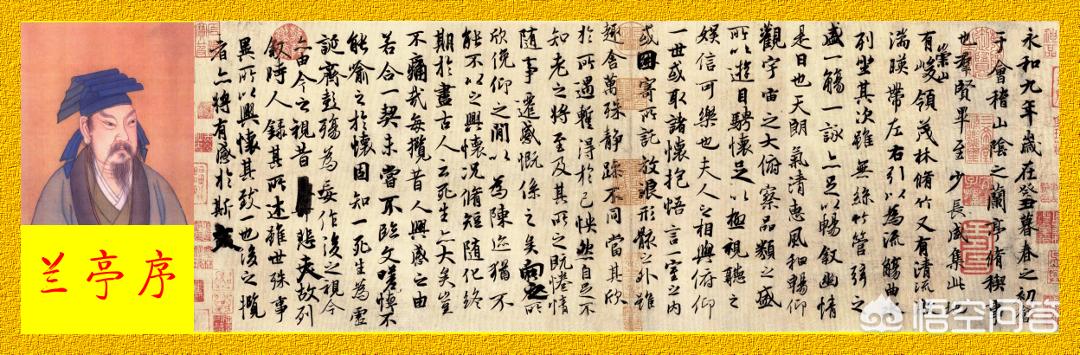 永和九年歲在癸丑暮春之初
于會稽山陰之蘭亭脩禊事
也羣賢畢至少長咸集此
有崇山峻領茂林脩竹又有清流
湍暎帶左右引以為流觴曲
列坐其次雖無絲竹管弦之
盛一觴一詠亦足以暢叙幽情
是日也天朗氣清惠風和暢仰
觀宇宙之大俯察品類之盛
所以遊目騁懷足以極視聽之
娛信可樂也夫人之相與俯仰
一世或取諸懷抱悟言一室之內
或因寄所託放浪形骸之外雖
趣舍萬殊靜躁不同當其欣
於所遇蹔得於己怏然自足不
知老之將至及其所之既惓情
隨事遷感慨係之矣向之所
欣俛仰之閒以為陳迹猶不
能不以之興懷況脩短隨化終
期於盡古人云死生亦大矣豈
不痛哉每攬昔人興感之由
若合一契未嘗不臨文嗟悼不
能喻之於懷固知一死生為虛
誕齊彭殤為妄作後之視今
亦由今之視昔悲夫故列
叙時人錄其所述雖世殊事
異所以興懷其致一也後之攬
者亦將有感於斯文
兰亭序
悟空问答